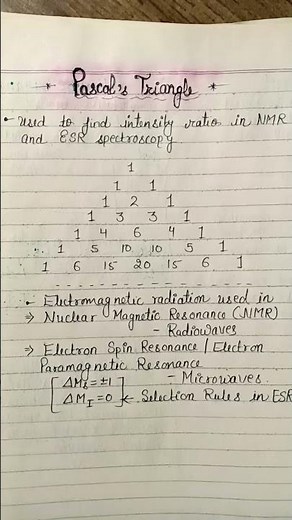 * Pascal's Triangle *
• Used to find intensity ratio in NMR
and ESR spectroscopy
1
1 1
1 2 1
1 3 3 1
1 4 6 4 1
1 5 10 10 5 1
1 6 15 20 15 6 1
• Electromagnetic radiation used in
⇒ Nuclear Magnetic Resonance (NMR)
- Radiowaves
⇒ Electron Spin Resonance / Electron
Paramagnetic Resonance
- Microwaves
[ΔMs = ±1
ΔMI = 0] ← Selection Rules in ESR